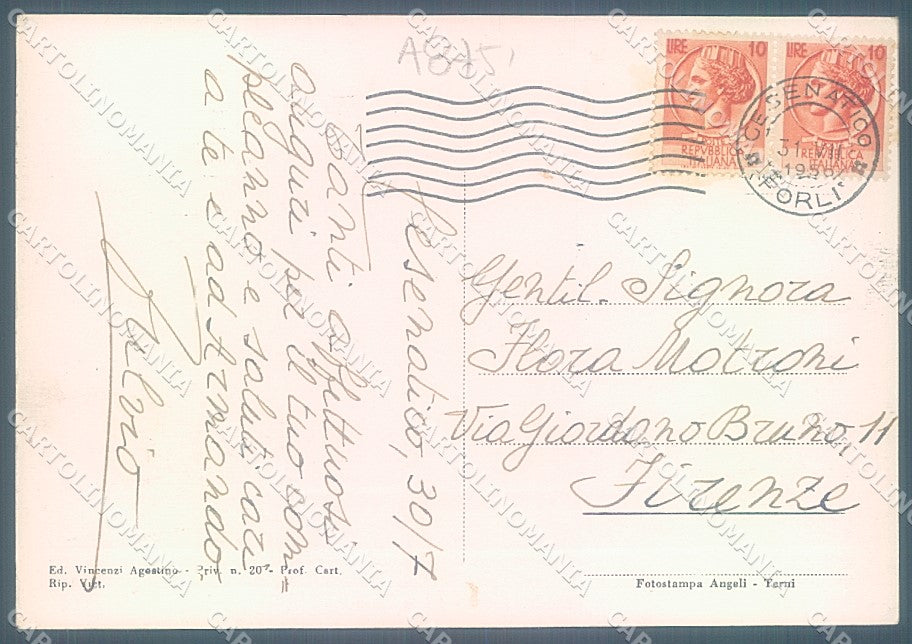 A875
LIRE 10
POSTE
REPVBBLICA
ITALIANA
LIRE 10
REPVBBLICA
ITALIANA
CESENATICO
31 VII
FORLI'
Cesenatico, 30/7
Tanti affettuosi
auguri per il tuo com=
pleanno e saluti cari
a te e ad Armando
Gentil. Signora
Flora Motroni
Via Giordano Bruno, 11
Firenze
Ed. Vincenzi Agostino - Priv. n. 207 - Prof. Cart.
Rip. Viet.
Fotostampa Angeli - Terni
CARTOLINOMANIA